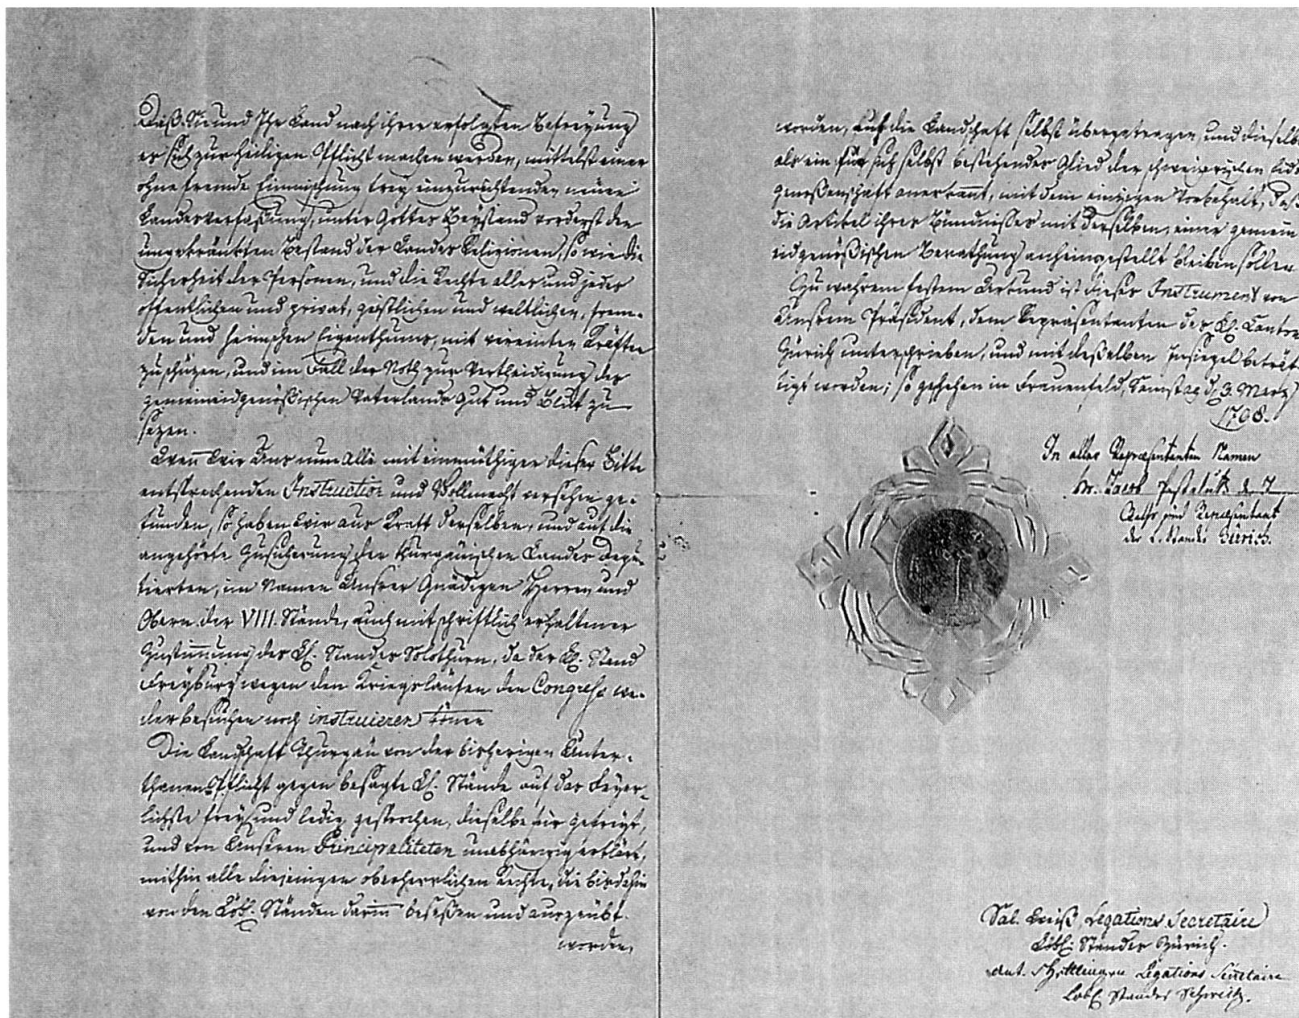 daß Sie und Ihr Land nach ihrer erfolgten Befreyung
es sich zur heiligen Pflicht machen werden, mittelst einer
ohne fremde Einmischung frey einzurichtenden neüen
Landesverfaßung, unter Gottes Beystand vorderst den
ungekränkten Bestand der Landes Religionen, so wie die
Sicherheit der Personen, und die Rechte alles und jedes
öffentlichen und privat, geistlichen und weltlichen, frem-
den und heimschen Eigenthums, mit vereinten Kräften
zu schüzen, und im Fall der Noth zur Vertheidigung des
gemeineidgenößischen Vaterlands Gut und Blut zu
sezen.
Wenn Wir Uns nun alle mit einmüthiger dieser Bitte
entsprechenden Instruction und Vollmacht versehen ge-
funden, so haben Wir aus Kraft derselben, und auf die
angehörte Zusicherung der thurgäuischen Landes Depu-
tierten, im Namen Unsrer Gnädigen Herren und
Obern der VIII. Stände, auch mit schriftlich erhaltener
Zustimmung des L. Standes Solothurn, da der L. Stand
Freyburg wegen den Kriegsläufen den Congreß we-
der besuchen noch instruieren können
Die Landschaft Thurgäu von der bisherigen Unter-
thanenpflicht gegen besagte L. Stände auf das Feyer-
lichste frey und ledig gesprochen, dieselbe für gefreyt,
und von Unseren Principaliteten unabhängig erklärt,
mithin alle diejenigen oberherrlichen Rechte, die bis dahin
von den Lobl. Ständen darinn beseßen und ausgeübt
worden,
worden, auf die Landschaft selbst übergetragen, und dieselbe
als ein für sich selbst bestehendes Glied der schweizerischen Eid-
genoßenschaft anerkannt, mit dem einzigen Vorbehalt, daß
die Artikel ihres Bündnißes mit derselben, einer gemein
eidgenößischen Berathung anheimgestellt bleiben sollen.
Zu wahrem festem Urkund ist dieses Instrument von
Unsrem Präsident, dem Repräsentanten des L. Cantons
Zürich unterschrieben, und mit deßelben Insiegel bekräf-
tigt worden; so geschehen in Frauenfeld, Samstag d. 3. Merz
1798.
In aller Repræsentanten Namen
Jacob Pestaluz
und Repræsentant
des L. Standes Zürich.
Sal. Legations Secretaire
Löbl. Standes Zürich.
Legations Secretaire
Lobl. Standes Schweitz.